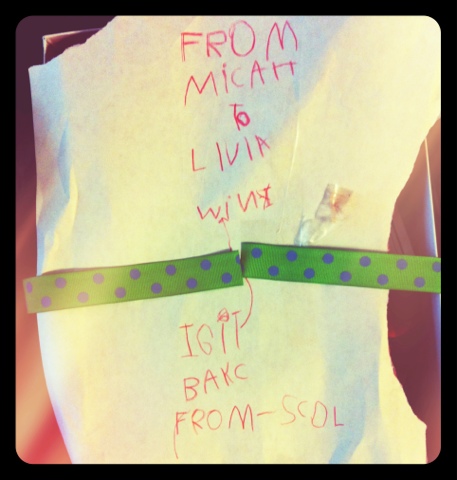 FROM
MICAH
to
LIVIA
WiNX
IGiT
BAKC
FROM-SCOL